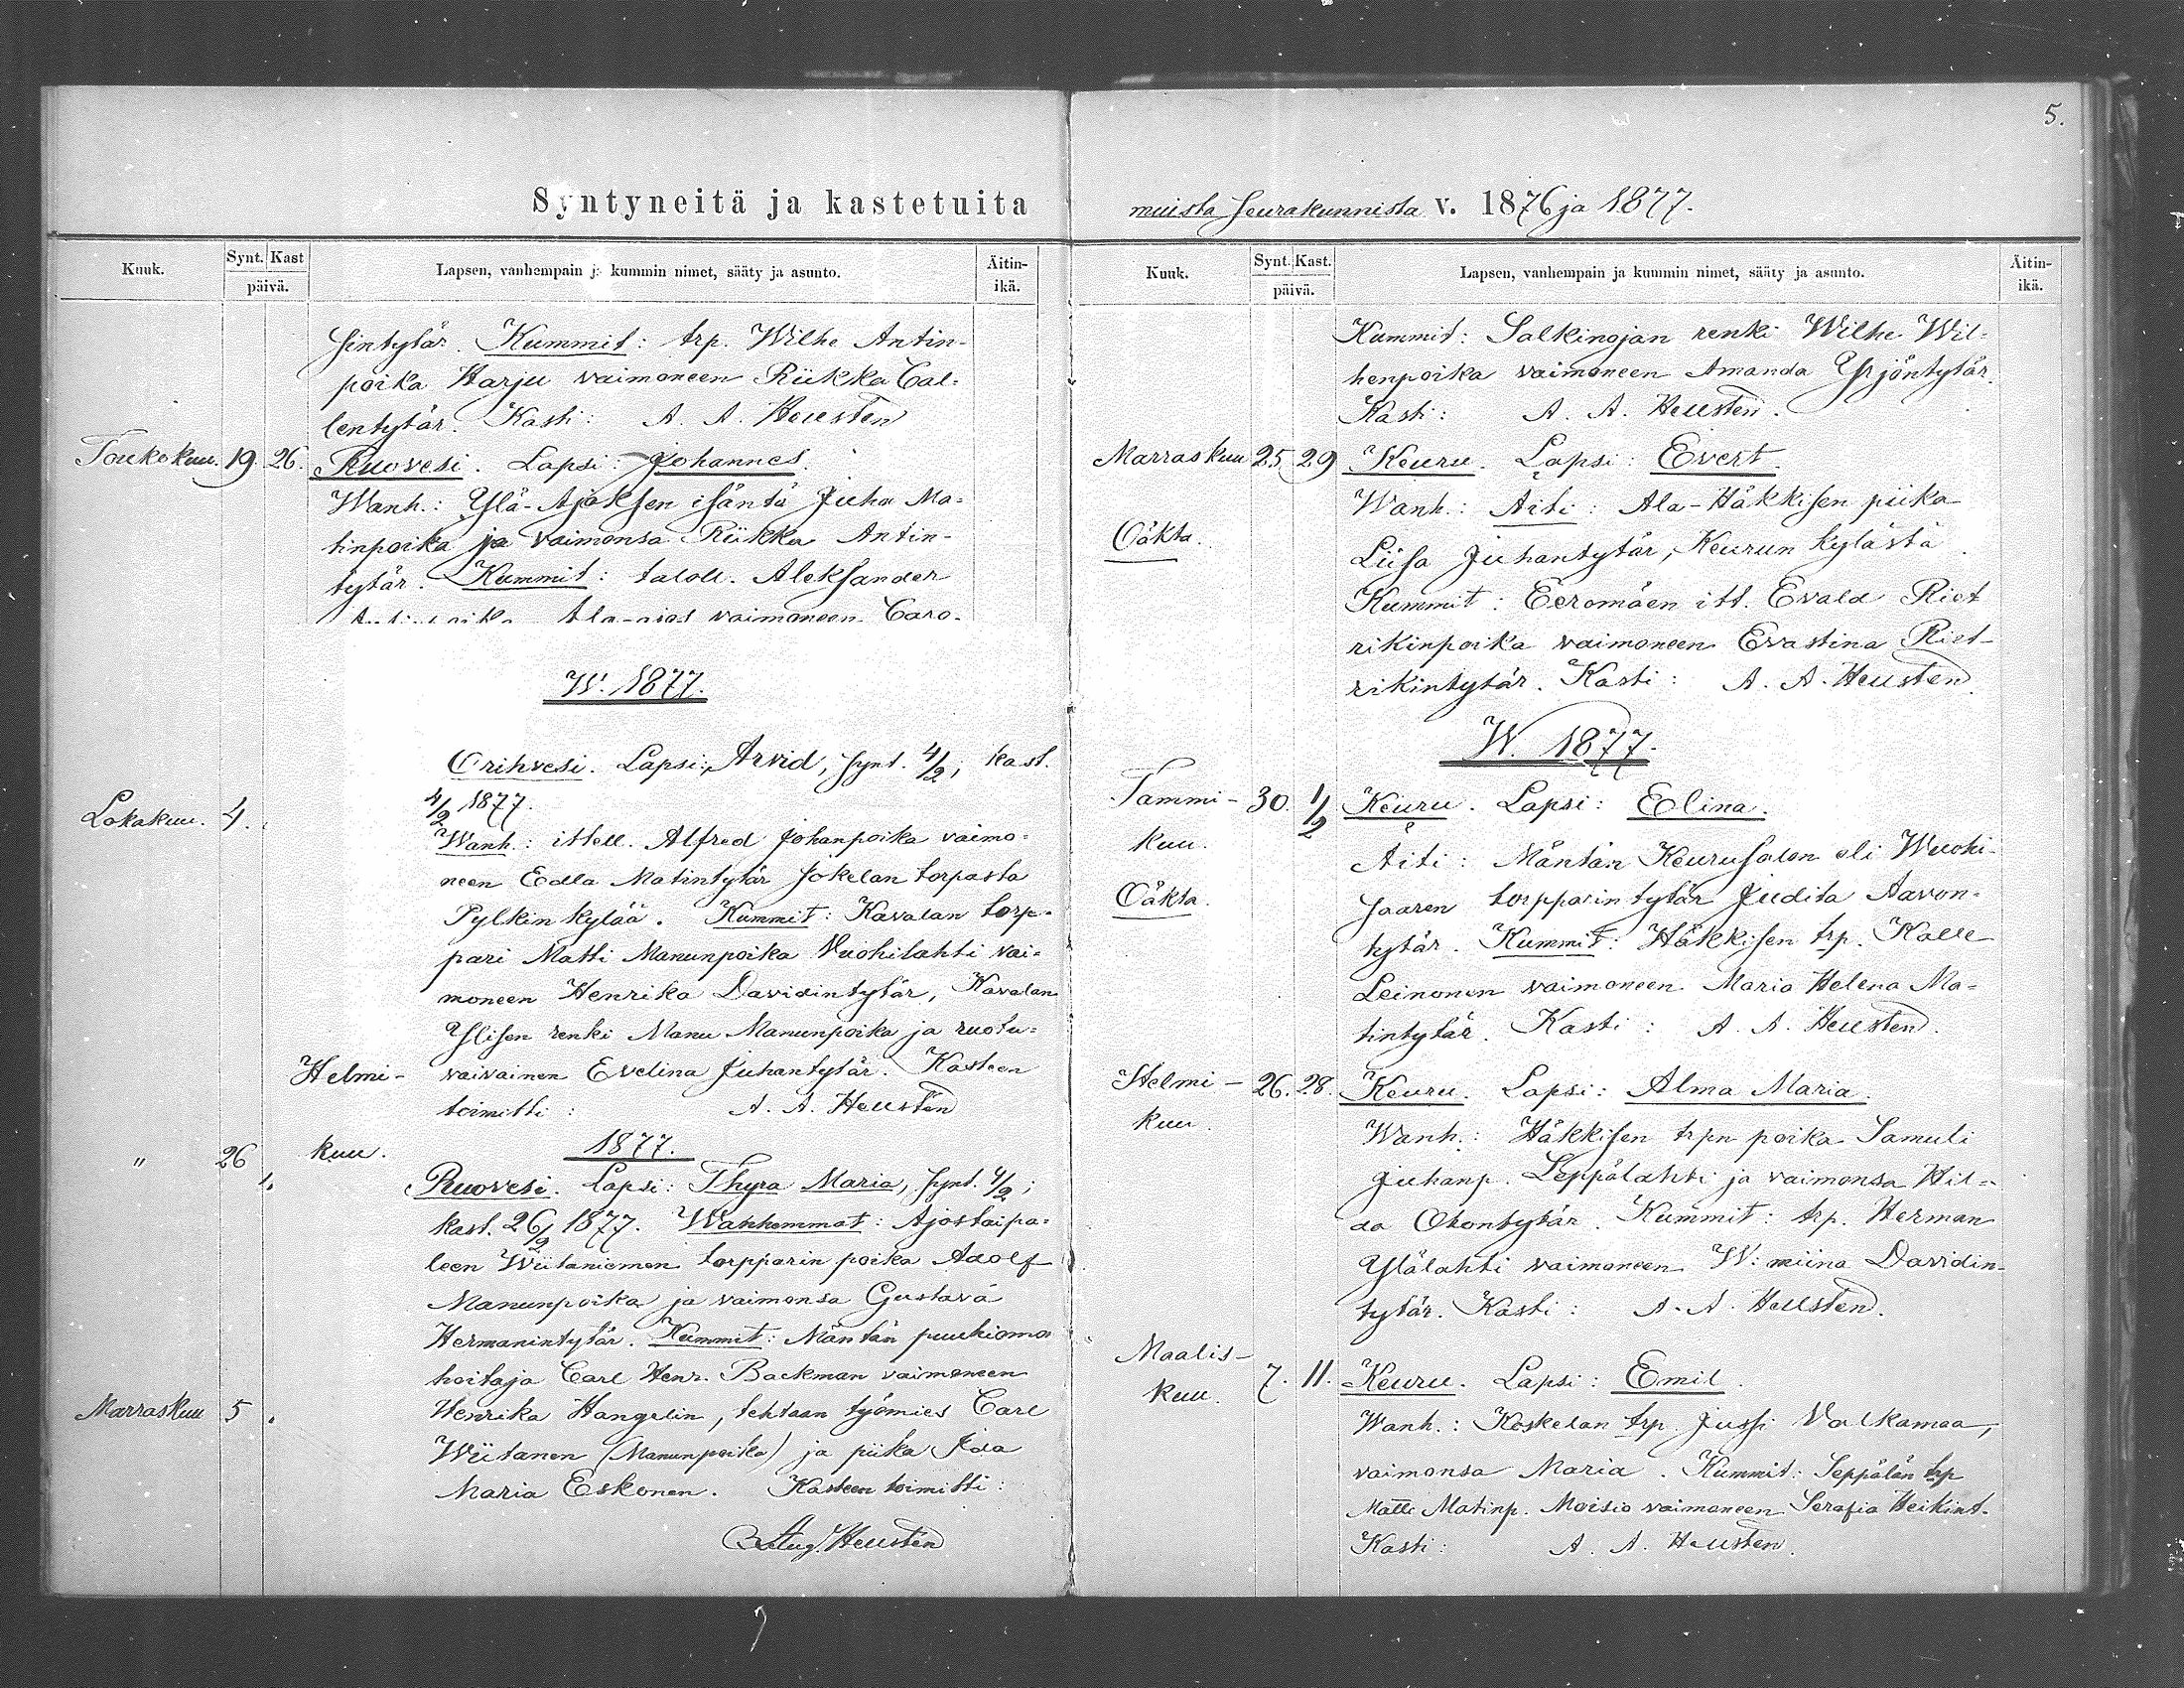 5.
Syntyneitä ja kastetuita
Kuuk. Synt. Kast päivä. Lapsen, vanhempain ja kummin nimet, sääty ja asunto. Äitin-ikä.
sintytär. Kummit: trp. Wilhe Antin-
poika Harju vaimoneen Riikka Cal-
lentytär. Kasti: A. A. Heusten
Toukokuu. 19. 26. Ruovesi. Lapsi: Johannes.
Wanh.: Ylä-Ajoksen isäntä Juha Ma-
tinpoika ja vaimonsa Riikka Antin-
tytär. Kummit: taloll. Aleksander
Ala-ajos vaimoneen Caro-
W. 1877.
Orihvesi. Lapsi: Arvid, synt. 4/2; kast.
4/2 1877.
Lokakuu. 4.
Wanh.: ittell. Alfred Johanpoika vaimo-
neen Edla Matintytär Jokelan torpasta
Pylkin kylää. Kummit: Kavalan torp-
pari Matti Manunpoika Vuohilahti vai-
moneen Henrika Davidintytär, Kavalan
Ylisen renki Manu Manunpoika ja ruotu-
Helmi- vaivainen Evelina Juhantytär. Kasteen
toimitti: A. A. Heusten
" 26 kuu. 1877.
Ruovesi. Lapsi: Thyra Maria, synt. 4/2;
kast. 26/2 1877. Wanhemmat: Ajostaipa-
leen Wiitaniemen torpparin poika Adolf
Manunpoika ja vaimonsa Gustava
Hermanintytär. Kummit: Mäntän puuhioma
hoitaja Carl Henr. Backman vaimoneen
Marraskuu 5. Henrika Hangelin, tehtaan työmies Carl
Wiitanen (Manunpoika) ja piika Ida
Maria Eskonen. Kasteen toimitti:
Aug. Heusten
muista seurakunnista v. 1876 ja 1877.
Kuuk. Synt. Kast. päivä. Lapsen, vanhempain ja kummin nimet, sääty ja asunto. Äitin-ikä.
Kummit: Salkinojan renki Wilhe Wil-
henpoika vaimoneen Amanda Yrjöntytär.
Kasti: A. A. Heusten.
Marraskuu 25 29 Keuru. Lapsi: Evert.
Wanh.: Aiti: Ala-Häkkisen piika
Oäkta. Liisa Juhantytär, Keurun kylästä.
Kummit: Eeromäen itt. Evald Riet
rikinpoika vaimoneen Evastina Riet-
rikintytär. Kasti: A. A. Heusten.
W. 1877.
Tammi- 30. 1/2 Keuru. Lapsi: Elina.
kuu. Aiti: Mäntän Keurusalon eli Wuohi-
Oäkta. saaren torpparintytär Judita Aavon-
tytär. Kummit: Häkkisen trp. Kalle
Leinonen vaimoneen Maria Helena Ma-
tintytär. Kasti: A. A. Heusten.
Helmi- 26. 28. Keuru. Lapsi: Alma Maria.
kuu. Wanh.: Häkkisen trpn poika Samuli
Juhanp. Leppälahti ja vaimonsa Hil-
da Okontytär. Kummit: trp. Herman
Ylälahti vaimoneen W:miina Davidin-
tytär. Kasti: A. A. Heusten.
Maalis-
kuu. 7. 11. Keuru. Lapsi: Emil.
Wanh.: Koskelan trp. Jussi Valkamaa,
vaimonsa Maria. Kummit: Seppälän trp
Malle Matinp. Moisio vaimoneen Serafia Heikint.
Kasti: A. A. Heusten.